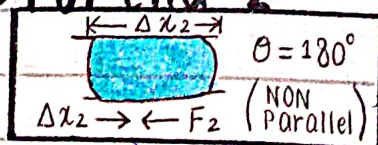 |← Δx2 →|
θ = 180°
Δx2 → ← F2
(NON Parallel)